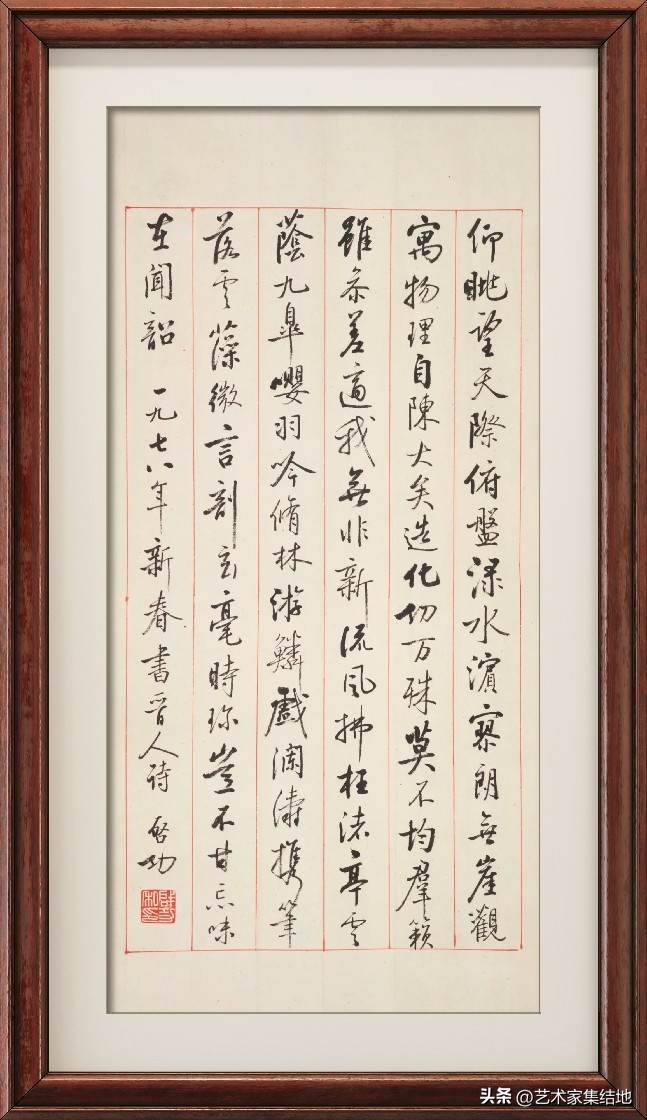 仰眺望天際俯盤淥水濱寥朗無崖觀
寓物理自陳大矣造化功万殊莫不均羣籟
雖參差適我無非新流風拂枉渚亭雲
蔭九皐嚶羽吟脩林游鱗戲瀾濤攜筆
落雲藻微言剖玄毫時珍豈不甘忘味
在聞韶 一九七八年新春書晉人詩 啓功
头条 @艺术家集结地